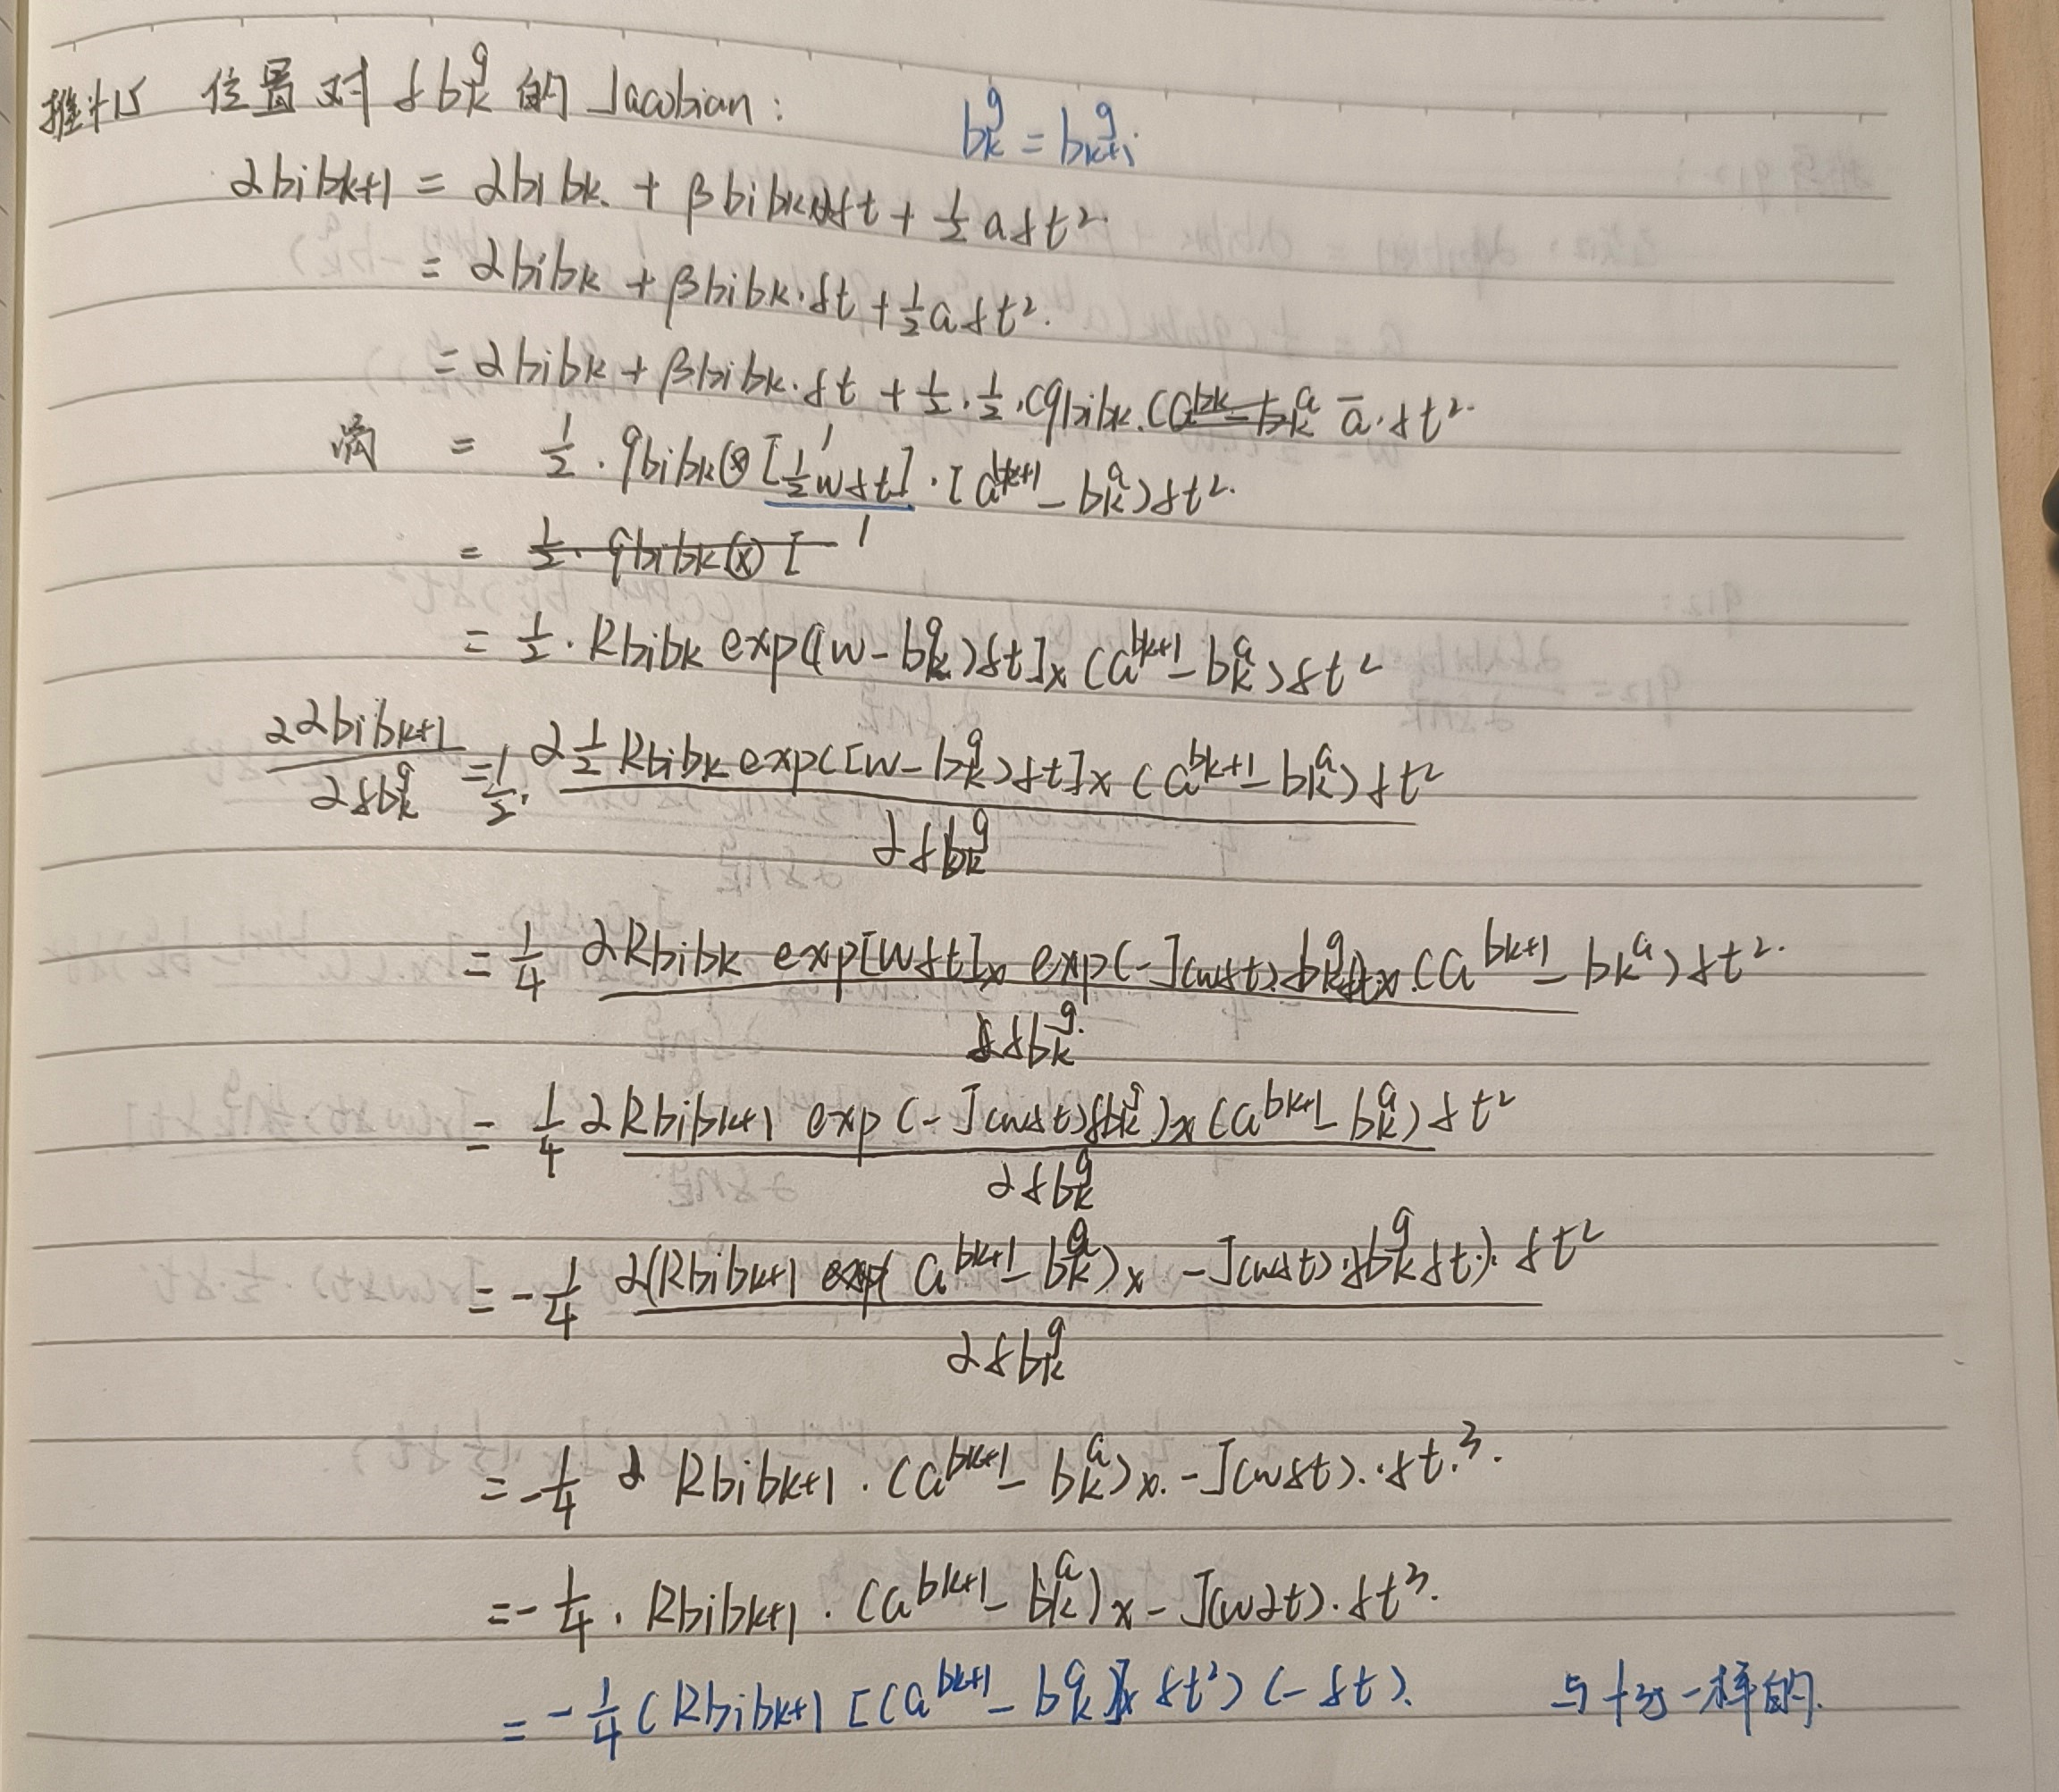 推f15 位置对 δb_k^g 的 Jacobian:
b_k^g = b_{k+1}^g
αbibk+1 = αbibk + βbibk δt + ½ a δt²
= αbibk + βbibk·δt + ½ a δt².
= αbibk + βbibk·δt + ½·½·(qbibk.(a^{bk} - b_k^a ā·δt²
= ½·qbibk⊗[1 ½wδt]·[a^{bk+1} - b_k^a)δt².
= ½·qbibk⊗[ 1
= ½·Rbibk exp([w - b_k^g)δt]x (a^{bk+1} - b_k^a)δt²
∂αbibk+1 / ∂δb_k^g = ½· ∂½Rbibk exp([w - b_k^g)δt]x (a^{bk+1} - b_k^a)δt² / ∂δb_k^g
= ¼ ∂Rbibk exp[wδt]x exp(-J(wδt)·δb_k^g δt)x·(a^{bk+1} - b_k^a)δt² / ∂δb_k^g
= ¼ ∂Rbibk+1 exp(-J(wδt)δb_k^g)x(a^{bk+1} - b_k^a)δt² / ∂δb_k^g
= -¼ ∂(Rbibk+1 exp(a^{bk+1} - b_k^a)x - J(wδt)·δb_k^g δt)·δt² / ∂δb_k^g
= -¼ ∂ Rbibk+1·(a^{bk+1} - b_k^a)x·-J(wδt)·δt³.
= -¼·Rbibk+1·(a^{bk+1} - b_k^a)x - J(w∂t)·δt³.
= -¼(Rbibk+1[(a^{bk+1} - b_k^a)]x δt²)(-δt). 与f35一样的.